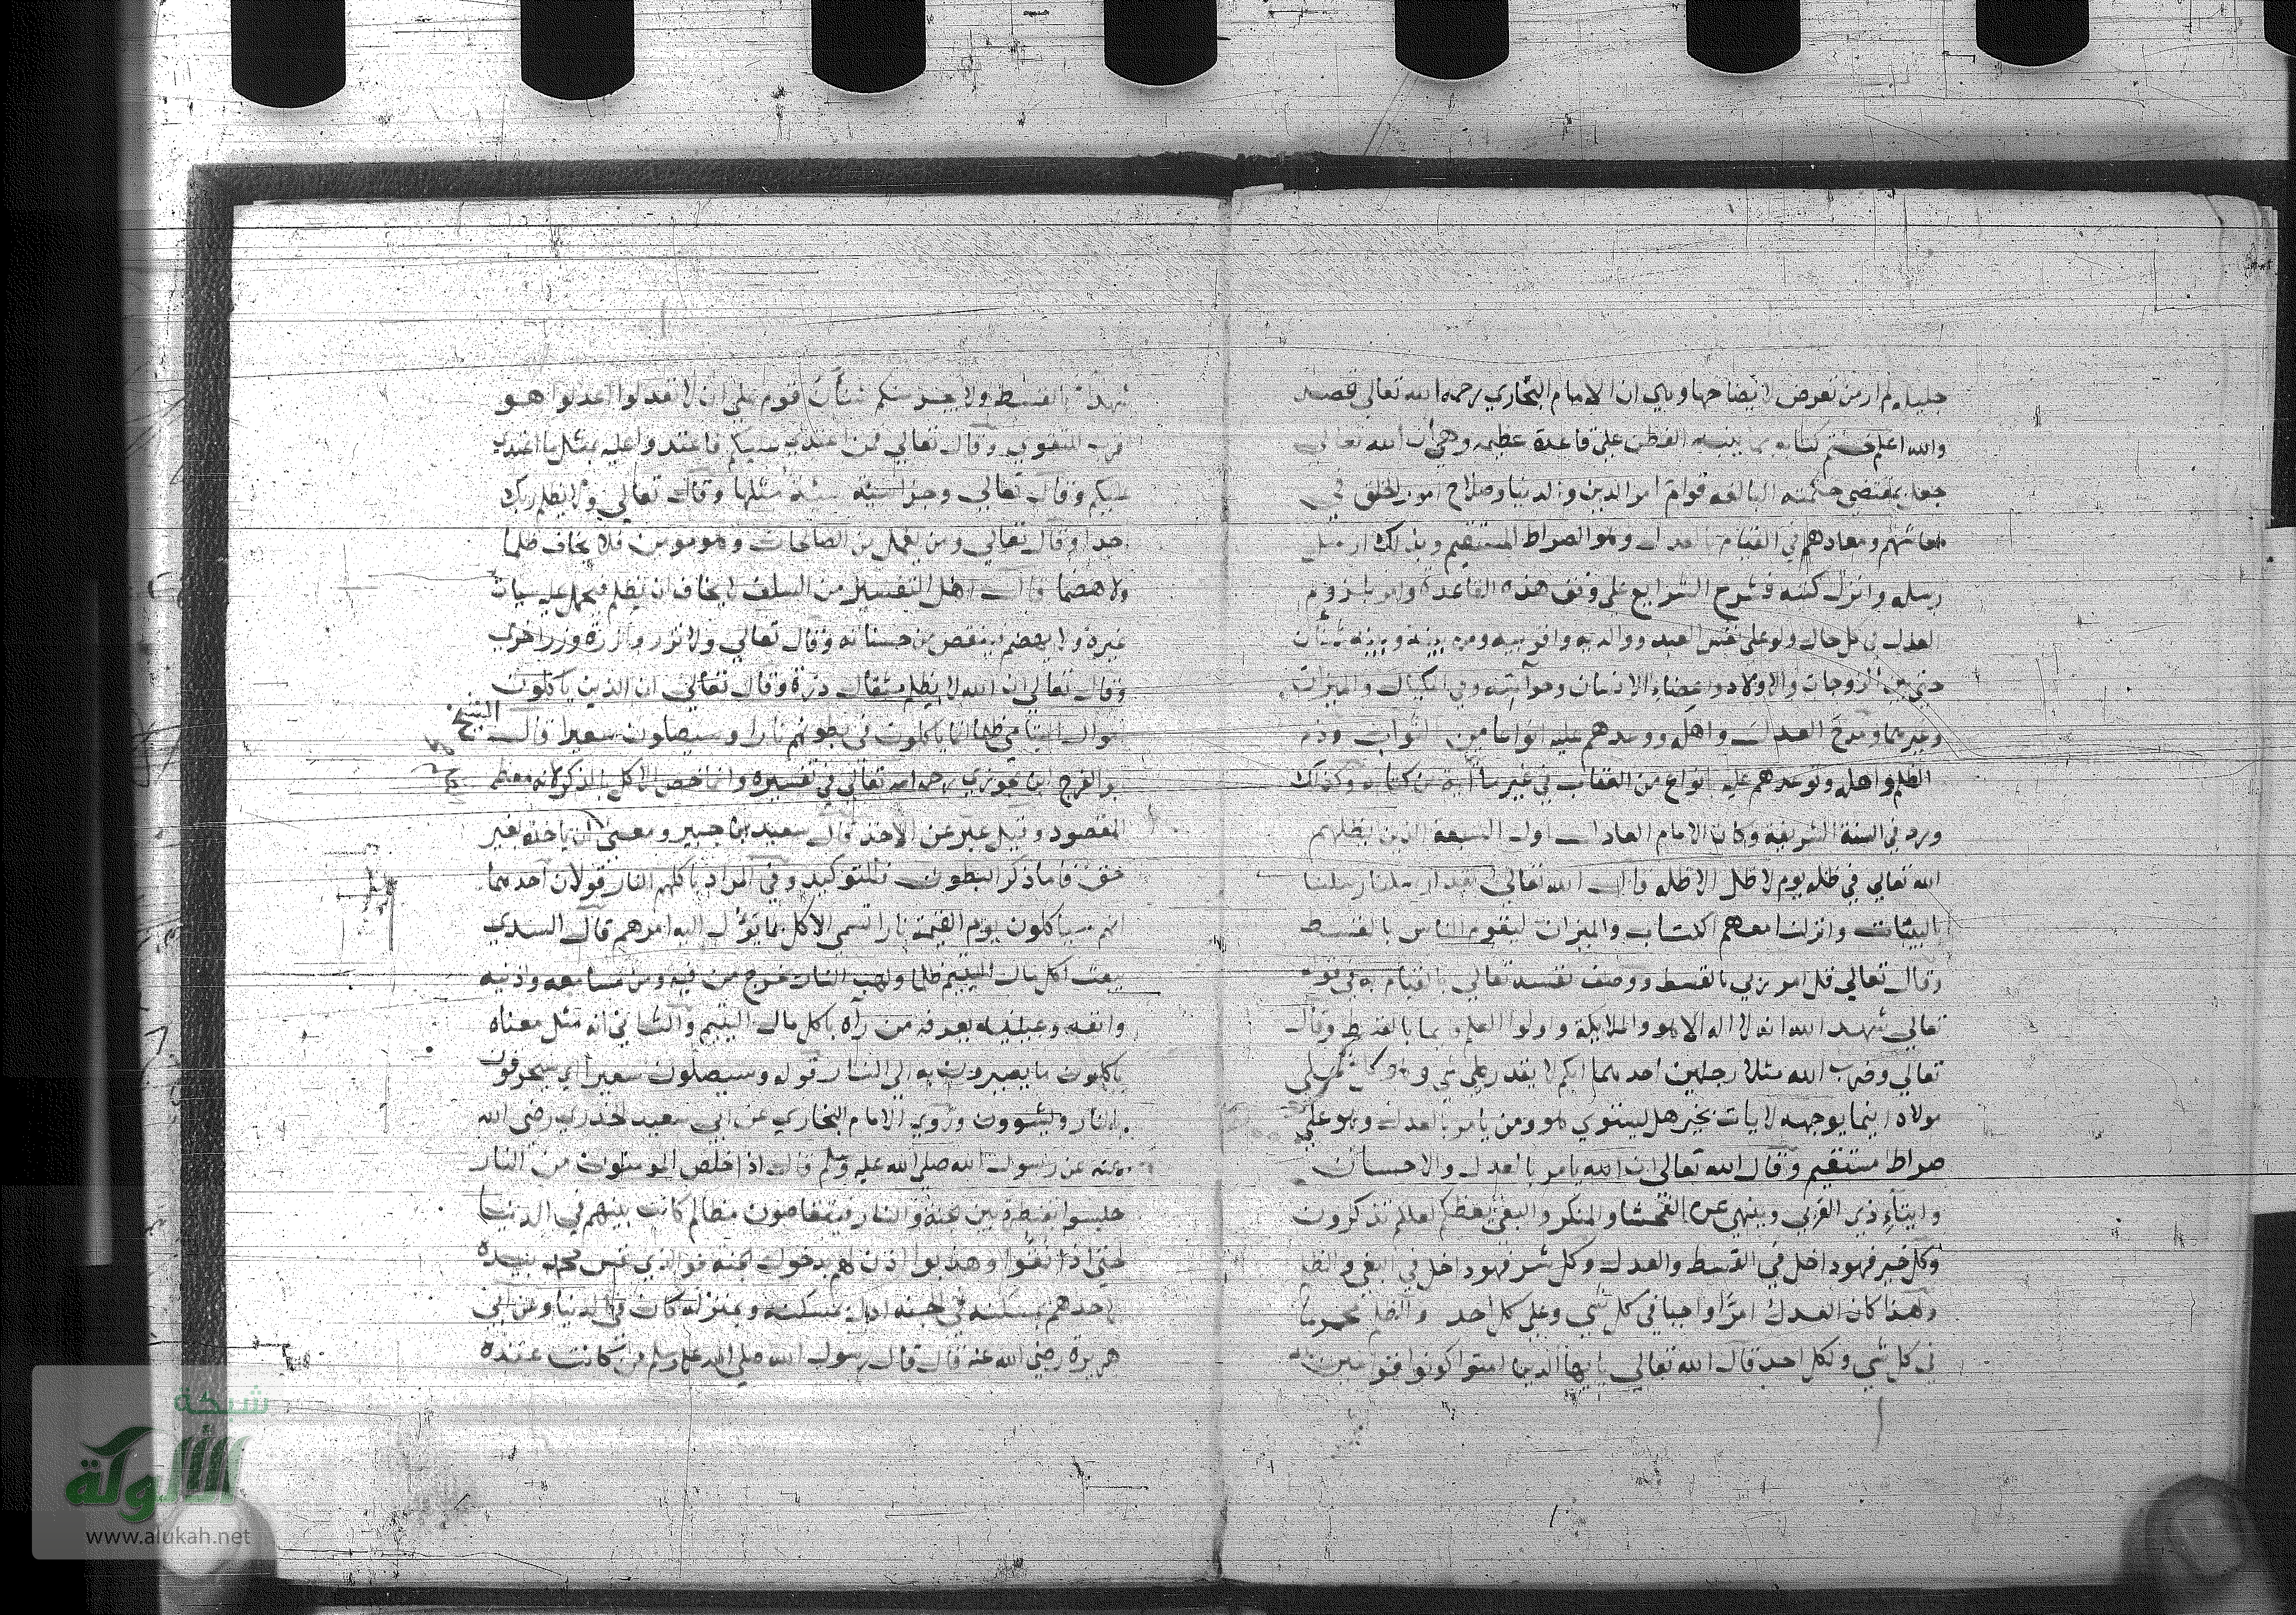 جليله لم ار من تعرض لايضاحها وهي ان الامام البخاري رحمه الله تعالى قصد
والله اعلم ختم كتابه بما ينبه الفطن على قاعدة عظيمه وهي أن الله تعالى
جعل بمقتضى حكمته البالغه قوام امر الدين والدنيا وصلاح امور الخلق في
معاشهم ومعادهم في القيام بالعدل وهو الصراط المستقيم وبذلك ارسل
رسله وانزل كتبه فشرع الشرايع على وفق هذه القاعدة وامر بلزوم
العدل في كل حال ولو على نفس العبد ووالديه واقربيه ومن بينه وبينه شنأن
حتى بين الزوجات والاولاد واعضاء الانسان وفي المكيال والميزان
وغيرهما ومدح العدل واهله ووعدهم عليه انواعا من الثواب وذم
الظلم واهله وتوعدهم عليه انواع من العقاب في غير ما آية من كتابه وكذلك
ورد في السنة الشريفة وكان الامام العادل اول السبعة الذين يظلهم
الله تعالى في ظله يوم لا ظل الا ظله قال الله تعالى لقد ارسلنا رسلنا
بالبينات وانزلنا معهم الكتاب والميزان ليقوم الناس بالقسط
وقال تعالى قل امر ربي بالقسط ووصف نفسه تعالى بالقيام به في قوله
تعالى شهد الله انه لا اله الا هو والملايكة واولوا العلم قايما بالقسط وقال
تعالى وضرب الله مثلا رجلين احدهما ابكم لا يقدر على شي وهو كل على
مولاه اينما يوجهه لا يات بخير هل يستوي هو ومن يامر بالعدل وهو على
صراط مستقيم وقال الله تعالى ان الله يامر بالعدل والاحسان
وايتاء ذي القربى وينهى عن الفحشا والمنكر والبغي يعظكم لعلكم تذكرون
وكل خير فهو داخل في القسط والعدل وكل شر فهو داخل في البغي والظلم
ولهذا كان العدل امرًا واجبا في كل شي وعلى كل احد والظلم محرما
في كل شي ولكل احد قال الله تعالى يا ايها الذين امنوا كونوا قوامين لله
شهدا بالقسط ولا يجرمنكم شنآن قوم على ان لا تعدلوا اعدلوا هو
اقرب للتقوى وقال تعالى فمن اعتدى عليكم فاعتدوا عليه بمثل ما اعتدى
عليكم وقال تعالى وجزا سيئة سيئة مثلها وقال تعالى ولا يظلم ربك
احدا وقال تعالى ومن يعمل من الصالحات وهو مومن فلا يخاف ظلما
ولا هضما قال اهل التفسير من السلف لا يخاف ان يظلم فيحمل عليه سيات
غيره ولا يهضم فينقص من حسناته وقال تعالى ولا تزر وازرة وزر اخرى
وقال تعالى ان الله لا يظلم مثقال ذرة وقال تعالى ان الذين ياكلون
اموال اليتامى ظلما انما ياكلون في بطونهم نارا وسيصلون سعيرا قال الشيخ
ابو الفرج ابن الجوزي رحمه الله تعالى في تفسيره وانما خص الاكل بالذكر لانه معظم
المقصود وقيل عبر عن الاخذ قال سعيد ابن جبير ومعنى ان ياخذه بغير
حق فاما ذكر البطون فللتوكيد وفي المراد باكلهم النار قولان احدهما
انهم سياكلون يوم القيمة نارا تسمى الاكل بما يؤل اليه امرهم قال السدي
يبعث اكل مال اليتيم ظلما ولهب النار يخرج من فيه ومن مسامعه واذنيه
وانفه وعينيه يعرفه من رآه باكل مال اليتيم والثاني انه مثل معناه
ياكلون ما يصيرون به الى النار قوله وسيصلون سعيرا اي سيحرقون
بالنار ويشوون وروى الامام البخاري عن ابي سعيد الخدري رضي الله
عنه عن رسول الله صلى الله عليه وسلم قال اذا خلص المومنون من النار
حبسوا بقنطرة بين الجنة والنار فيتقاصون مظالم كانت بينهم في الدنيا
حتى اذا نقوا وهذبوا اذن لهم بدخول الجنة فوالذي نفس محمد بيده
لاحدهم بمسكنه في الجنه ادل بمسكنه وبمنزله كان في الدنيا وعن ابي
هريرة رضي الله عنه قال قال رسول الله صلى الله عليه وسلم من كانت عنده
شبكة
الألوكة
www.alukah.net